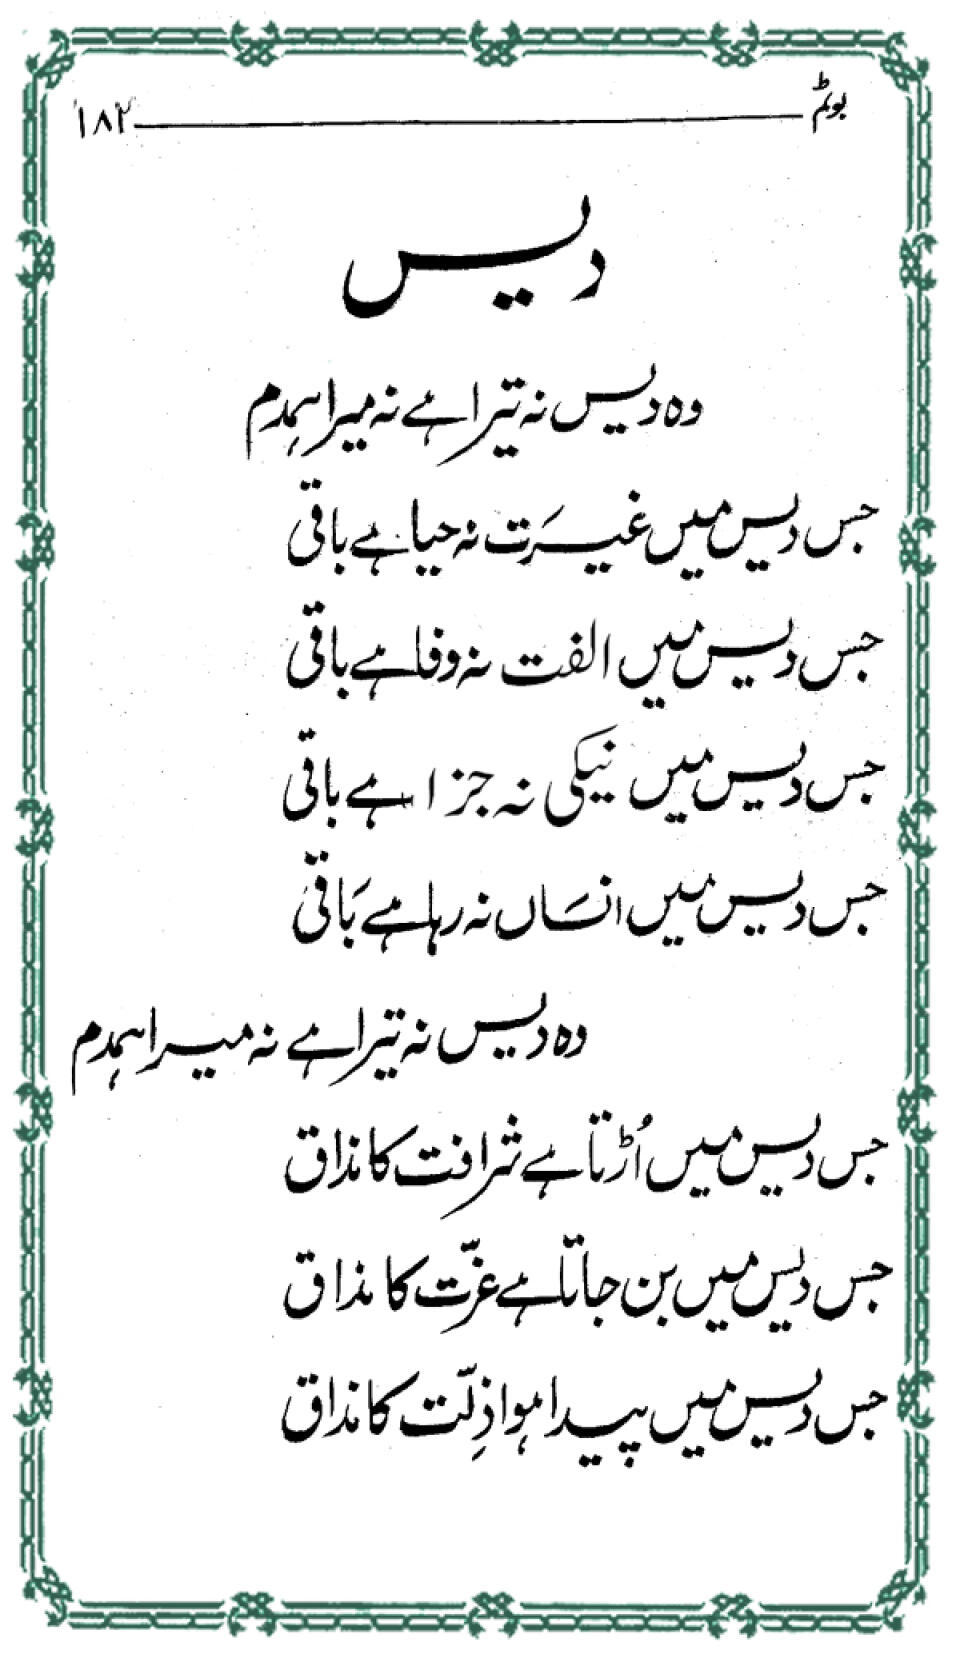 بوٹم ۱۸۲
دیس
وہ دیس نہ تیرا ہے نہ میرا ہمدم
جس دیس میں غیرت نہ حیا ہے باقی
جس دیس میں الفت نہ وفا ہے باقی
جس دیس میں نیکی نہ جزا ہے باقی
جس دیس میں انسَاں نہ رہا ہے بَاقی
وہ دیس نہ تیرا ہے نہ میرا ہمدم
جس دیس میں اُڑتا ہے شرافت کا مذاق
جس دیس میں بن جاتا ہے عزّت کا مذاق
جس دیس میں پیدا ہوا ذِلّت کا مذاق